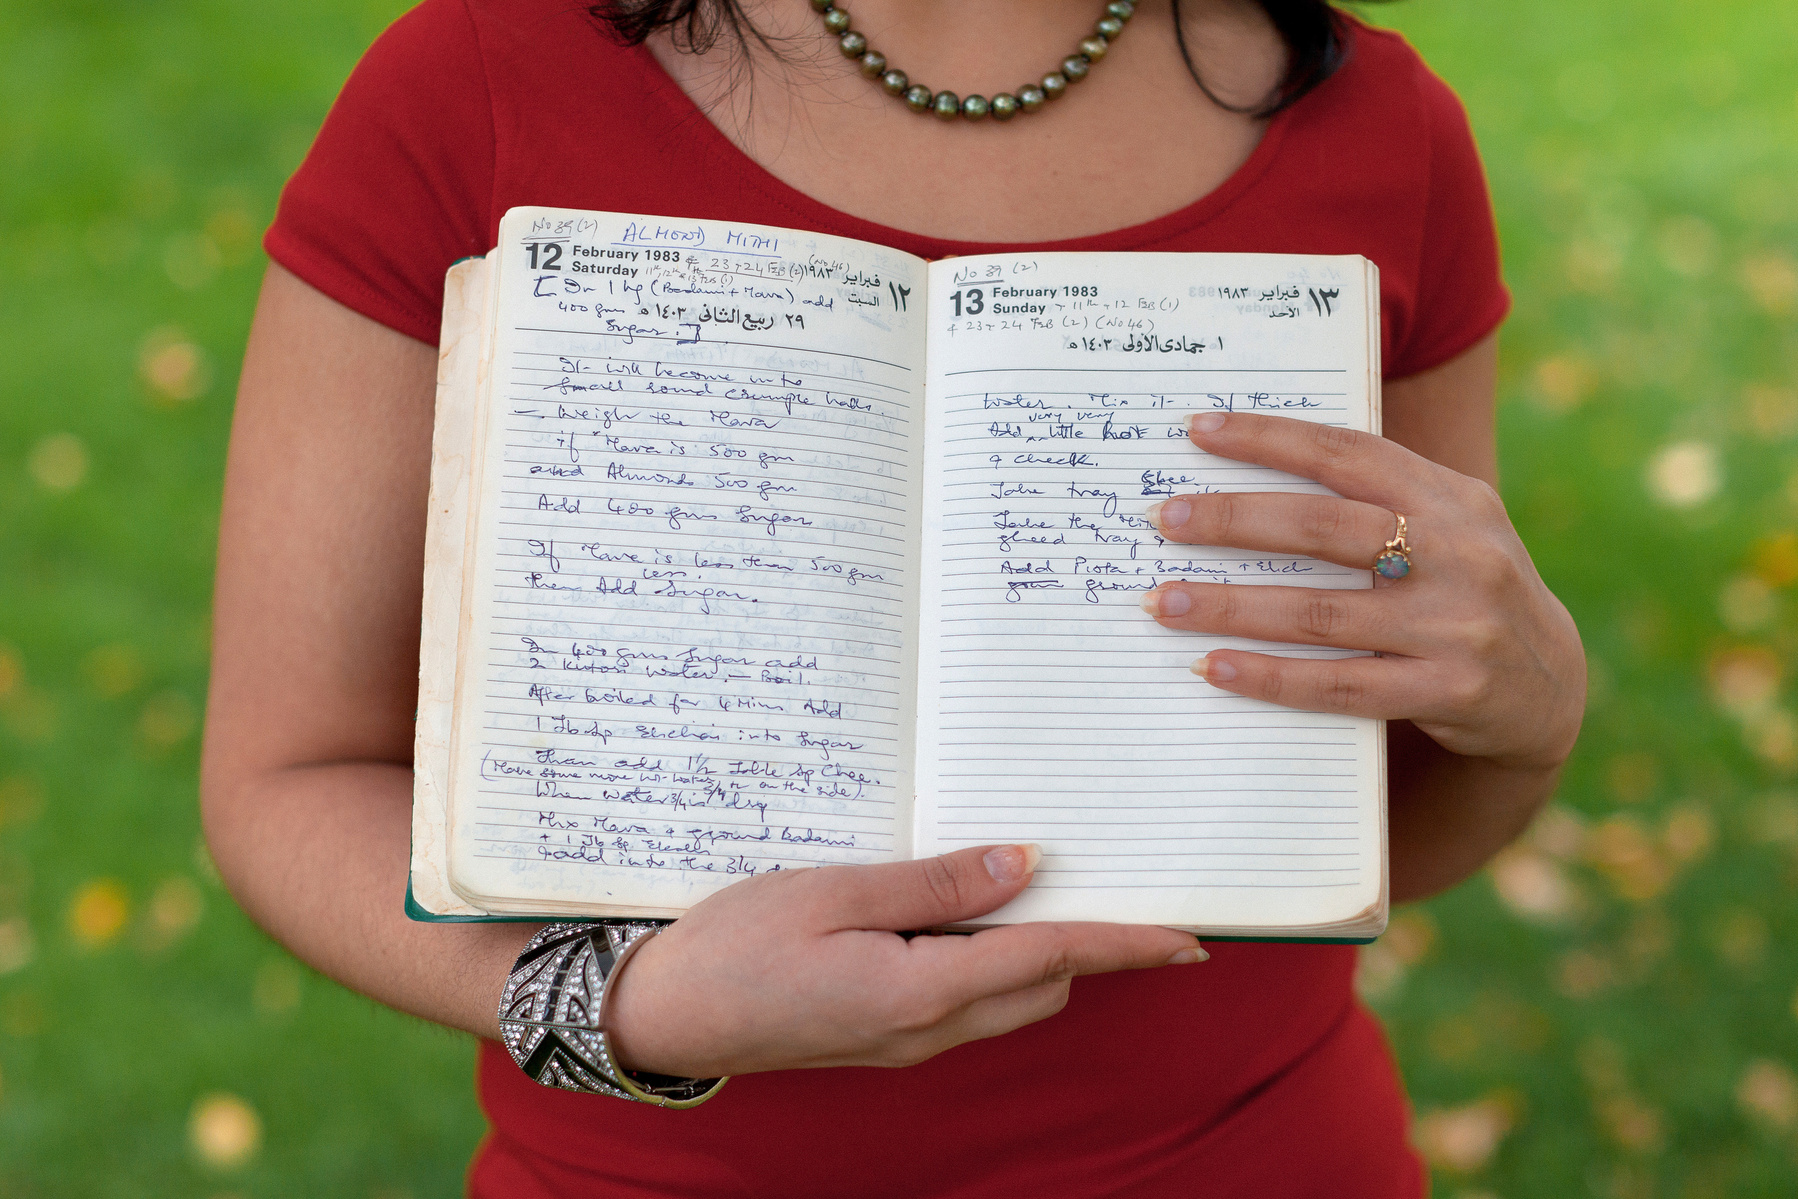 No 39 (2) ALMOND MITHI
12 February 1983 & 23 + 24 FEB (2) (No 46) فبراير ١٩٨٣ ١٢
Saturday 11th, 12th & 13th FEB (1) السبت
[ In 1 kg (Badam + Mava) add
400 gms ٢٩ ربيع الثاني ١٤٠٣ هـ
Sugar. ]
It will become into
small round crumple balls.
– Weigh the Mava
if Mava is 500 gm
and Almonds 500 gm
Add 400 gms Sugar
If Mava is less than 500 gm
then Add less Sugar.
In 400 gms Sugar add
2 Kutori water. – Boil.
After boiled for 4 Mins Add
1 Tb Sp Elichi into Sugar
Than add 1 1/2 Table Sp Ghee.
(Have some more hot water on the side).
When water 3/4 is dry
Mix Mava + ground Badam
+ 1 Tb Sp
& add into the 3/4
No 39 (2)
13 February 1983 فبراير ١٩٨٣ ١٣
Sunday + 11th + 12 FEB (1) الأحد
& 23 + 24 FEB (2) (No 46)
١ جمادى الأولى ١٤٠٣ هـ
Water. Mix it. If thick
Add very very little hot
& check.
Take tray Ghee it
Take the
gheed tray &
Add Pista + Badam + Elich
ground it